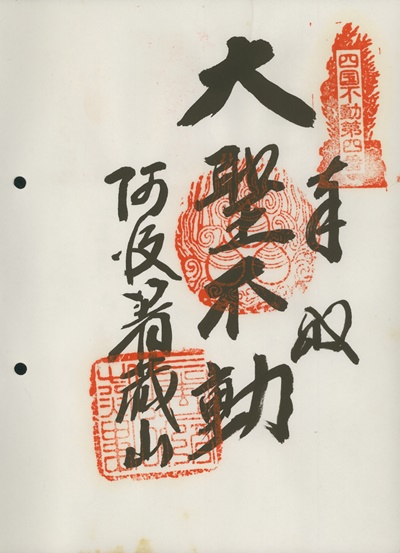 四国不動第四番
奉
大聖不動
阿波箸蔵山